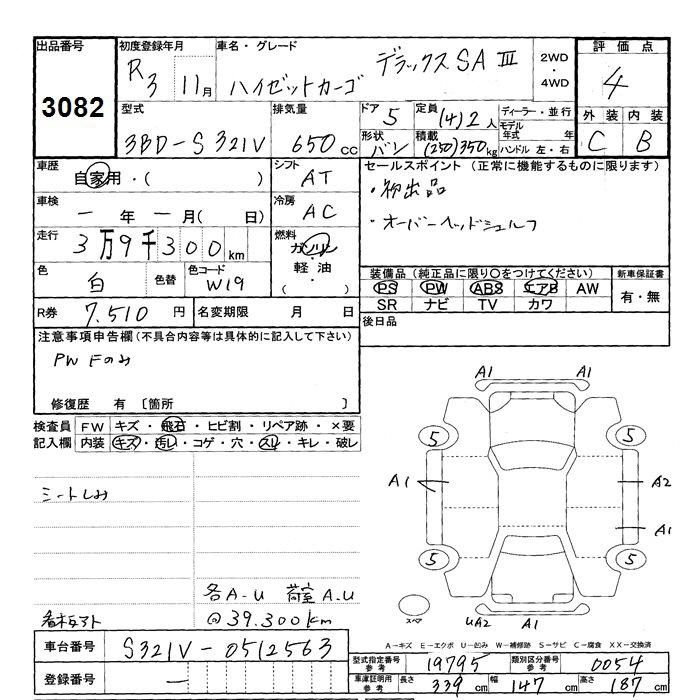 出品番号
3082
初度登録年月
R3 11月
車名・グレード
ハイゼットカーゴ デラックスSA Ⅲ
2WD
・
4WD
評価点
4
外装 内装
C B
型式
3BD-S321V
排気量
650cc
ドア 5
形状 バン
定員 (4)2人
積載 (250)350kg
ディーラー・並行
モデル年式 年
ハンドル 左・右
車歴
自家用・( )
シフト
AT
車検
- 年 - 月( 日)
冷房
AC
走行
3万9千300km
燃料
ガソリン
軽油
・
( )
色
白
色替
色コード
W19
R券
7.510 円
名変期限 月 日
セールスポイント(正常に機能するものに限ります)
・初出品
・オーバーヘッドシェルフ
装備品(純正品に限り○をつけてください)
PS PW ABS エアB AW
SR ナビ TV カワ
新車保証書
有・無
後日品
注意事項申告欄(不具合内容等は具体的に記入して下さい)
PW Fのみ
修復歴 有 〔箇所 〕
検査員記入欄
FW キズ・飛石・ヒビ割・リペア跡・×要
内装 キズ・汚れ・コゲ・穴・スレ・キレ・破レ
シートしみ
各A-U 荷室A.U
@39.300km
A1 A1
5 5
A1 A2
A1
5 5
スペア
UA2 A1
A-キズ E-エクボ U-凹み W-補修跡 S-サビ C-腐食 XX-交換済
車台番号
S321V-0512563
登録番号
-
型式指定番号 参考
19795
類別区分番号 参考
0054
車庫証明用 参考
長さ 339cm 幅 147cm 高さ 187cm